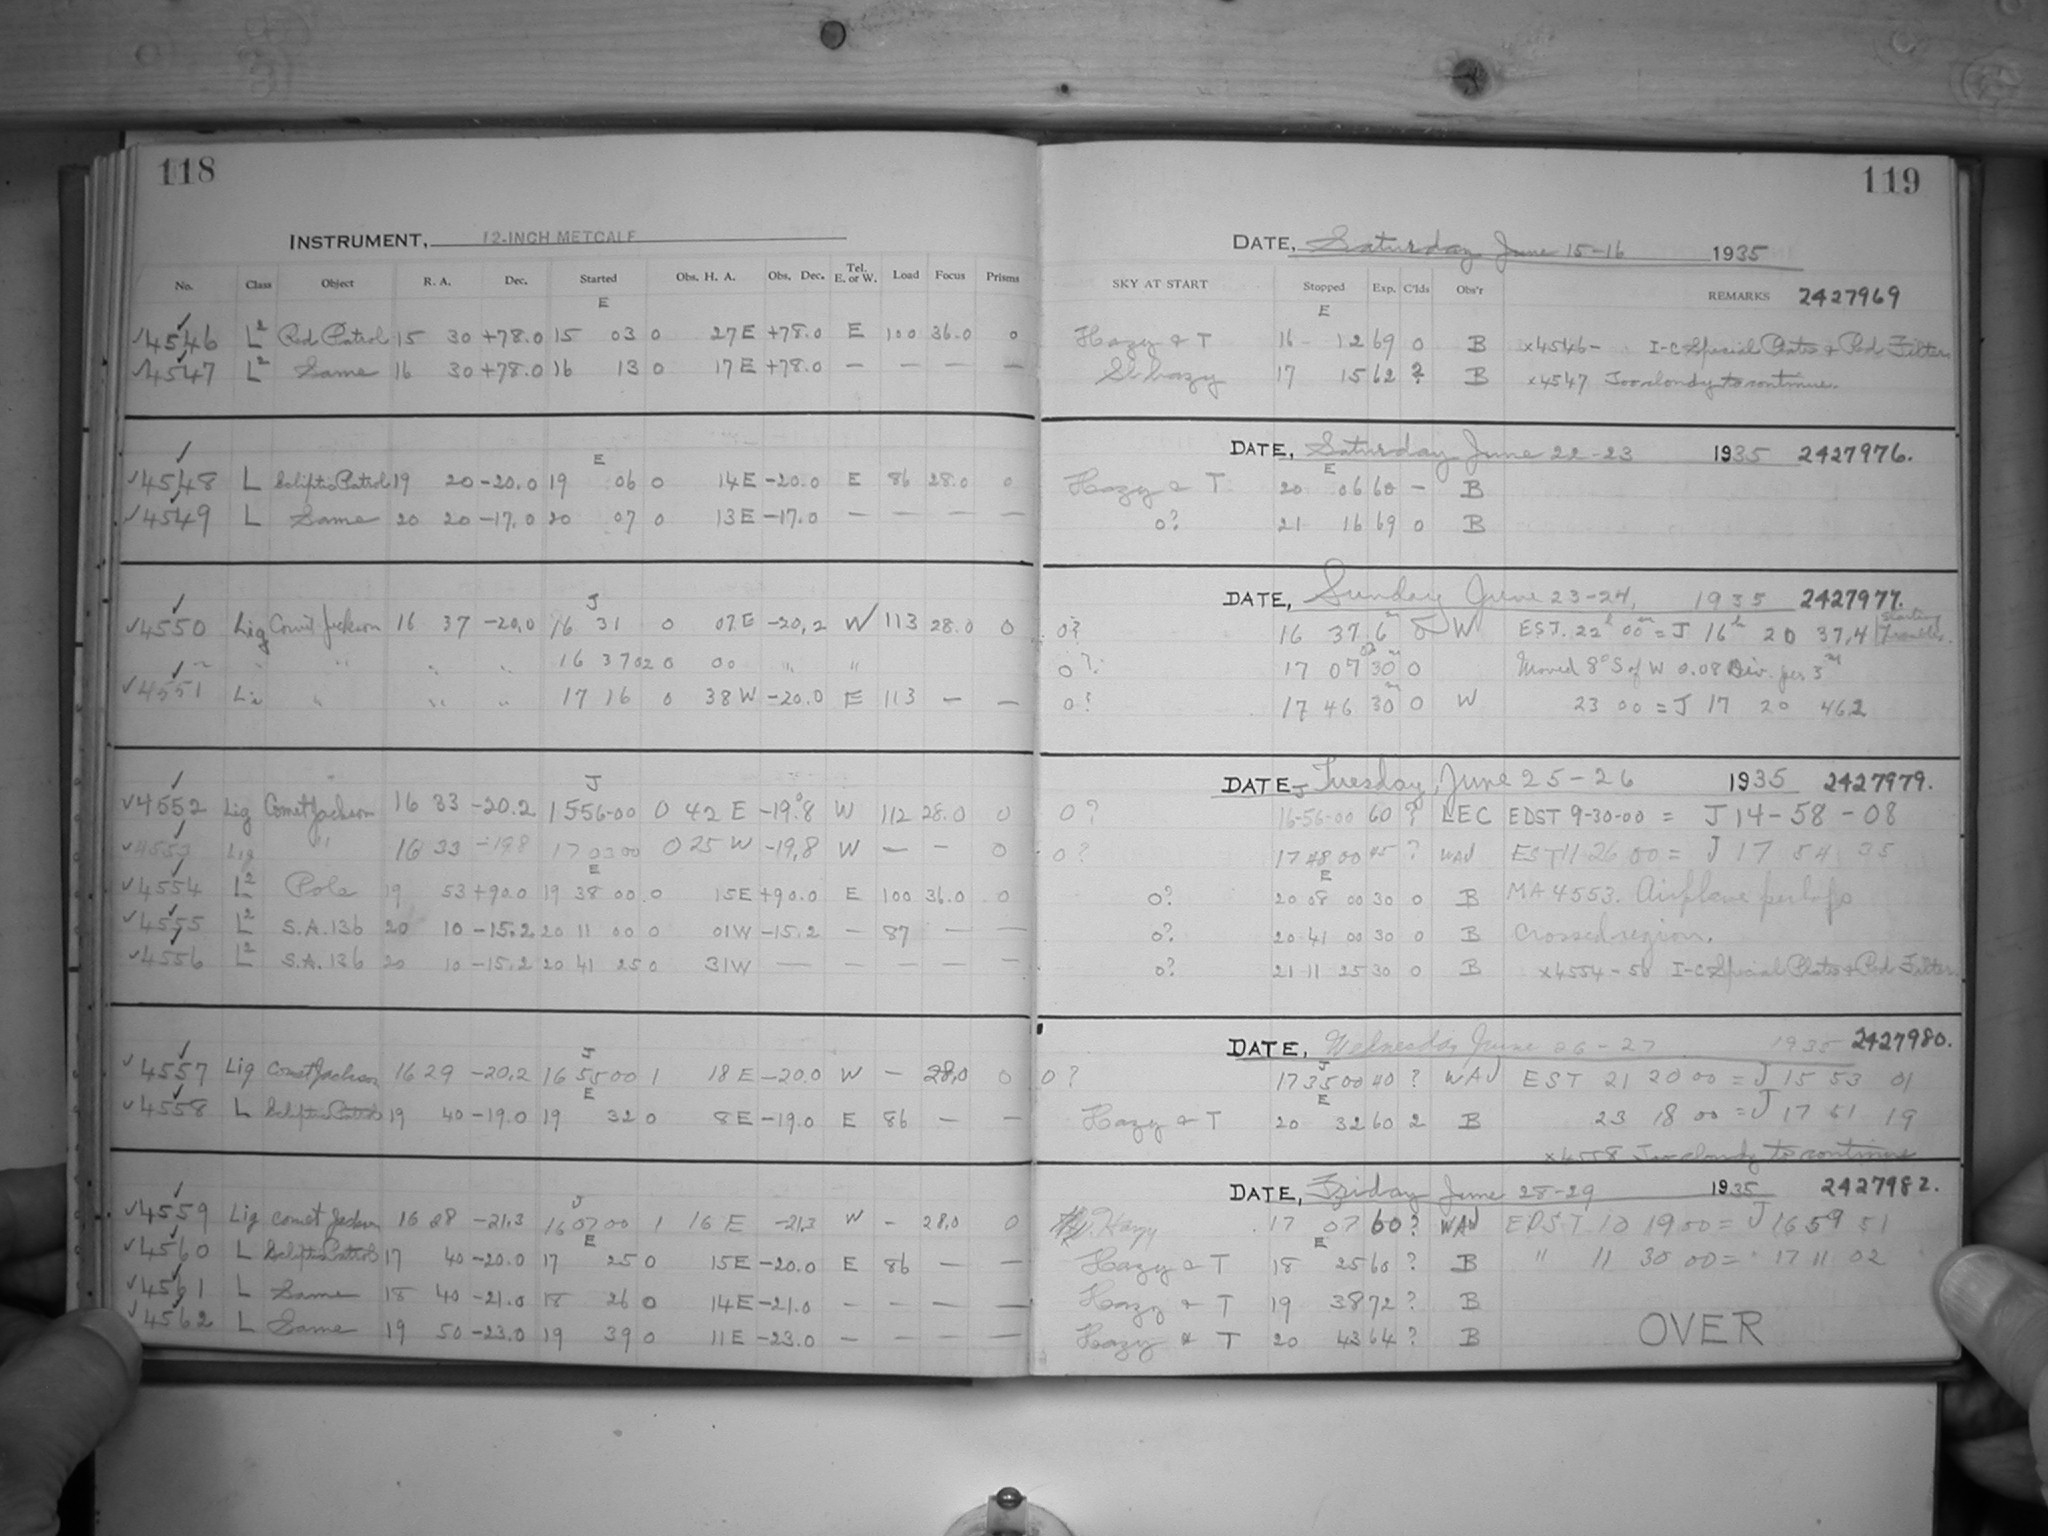 118
INSTRUMENT, 12-INCH METCALF
No. Class Object R. A. Dec. Started Obs. H. A. Obs. Dec. Tel. E. or W. Load Focus Prisms
E
√4546 L² Red Patrol 15 30 +78.0 15 03 0 27 E +78.0 E 100 36.0 0
√4547 L² Same 16 30 +78.0 16 13 0 17 E +78.0 — — — —
E
√4548 L Ecliptic Patrol 19 20 -20.0 19 06 0 14 E -20.0 E 86 28.0 0
√4549 L Same 20 20 -17.0 20 07 0 13 E -17.0 — — — —
J
√4550 Lig Comet Jackson 16 37 -20.0 16 31 0 07 E -20.2 W 113 28.0 0
" " " " 16 37 02 0 00 " "
√4551 Li " " " 17 16 0 38 W -20.0 E 113 — —
J
√4552 Lig Comet Jackson 16 33 -20.2 15 56-00 0 42 E -19.8 W 112 28.0 0
√4553 Lig " 16 33 -19.8 17 03 00 0 25 W -19.8 W — — 0
E
√4554 L² Pole 19 53 +90.0 19 38 00 0 15 E +90.0 E 100 36.0 0
√4555 L² S.A. 136 20 10 -15.2 20 11 00 0 01 W -15.2 — 87 — —
√4556 L² S.A. 136 20 10 -15.2 20 41 25 0 31 W — — — — —
J
√4557 Lig Comet Jackson 16 29 -20.2 16 55 00 1 18 E -20.0 W — 28.0 0
E
√4558 L Ecliptic Patrol 19 40 -19.0 19 32 0 8 E -19.0 E 86 — —
J
√4559 Lig Comet Jackson 16 28 -21.3 16 07 00 1 16 E -21.3 W — 28.0 0
E
√4560 L Ecliptic Patrol 17 40 -20.0 17 25 0 15 E -20.0 E 86 — —
√4561 L Same 18 40 -21.0 18 26 0 14 E -21.0 — — — —
√4562 L Same 19 50 -23.0 19 39 0 11 E -23.0 — — — —
119
DATE, Saturday June 15-16 1935
SKY AT START Stopped Exp. C'lds Obs'r REMARKS 2427969
E
Hazy & T 16 12 69 0 B x4546- I-C Special Plate & Red Filter
Sl hazy 17 15 62 ? B x4547 Too cloudy to continue.
DATE, Saturday June 22-23 1935 2427976.
E
Hazy & T. 20 06 60 — B
0? 21 16 69 0 B
DATE, Sunday June 23-24, 1935 2427977.
0? 16 37 6ᵐ W EST. 22ʰ 00ᵐ = J 16ʰ 20 37.4 Starting Trouble.
0? 17 07 02 30ᵐ 0 Moved 8° S of W 0.08 Div. per 3ᵐ
0? 17 46 30ᵐ 0 W 23 00 = J 17 20 46.2
DATE, Tuesday, June 25-26 1935 2427979.
J
0? 16-56-00 60 ? LEC EDST 9-30-00 = J 14-58-08
0? 17 48 00 45 ? WAJ EST 11 26 00 = J 17 54 35
E
0? 20 08 00 30 0 B MA 4553. Airplane perhaps
0? 20 41 00 30 0 B crossed region.
0? 21 11 25 30 0 B x4554-56 I-C Special Plate & Red Filter.
DATE, Wednesday June 26-27 1935 2427980.
J
0? 17 35 00 40 ? WAJ EST 21 20 00 = J 15 53 01
E
Hazy & T 20 32 60 2 B 23 18 00 = J 17 51 19
x4558 Too cloudy to continue
DATE, Friday June 28-29 1935 2427982.
Hazy 17 07 60 ? WAJ EDST 10 19 00 = J 16 59 51
E
Hazy & T 18 25 60 ? B " 11 30 00 = " 17 11 02
Hazy & T 19 38 72 ? B
Hazy & T 20 43 64 ? B
OVER